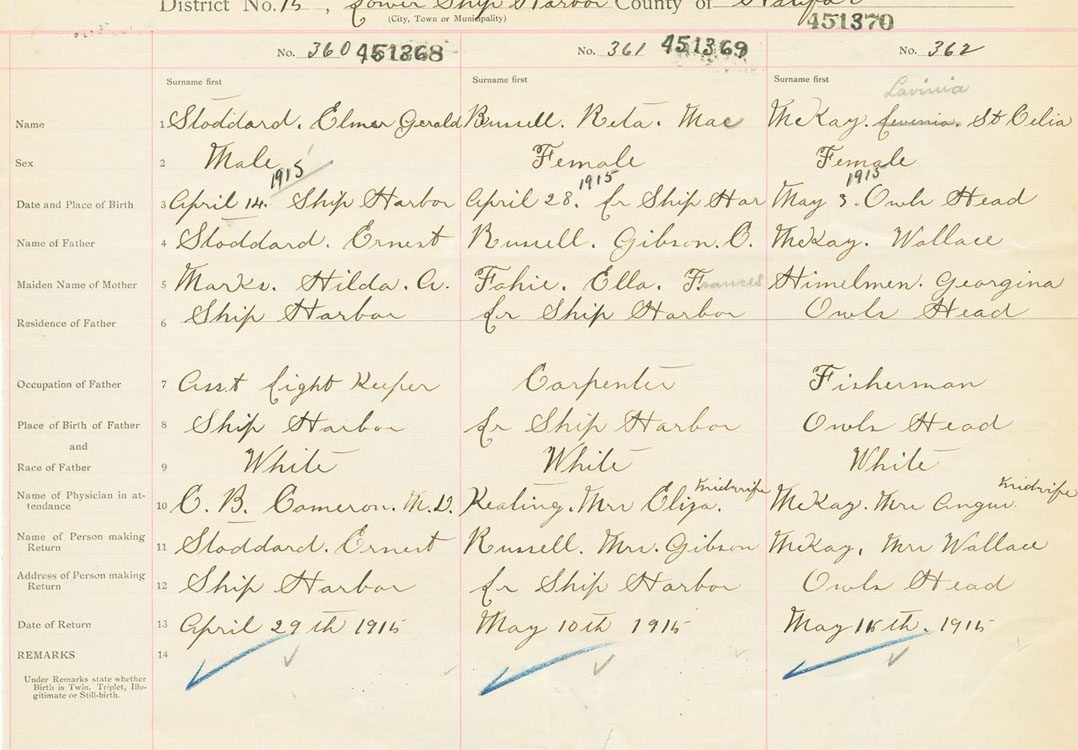 District No. 15, Lower Ship Harbor County of Halifax
(City, Town or Municipality)
451370
No. 360 451368 No. 361 451369 No. 362
Surname first Surname first Surname first
Lavinia
Name 1 Stoddard. Elmer Gerald Russell. Reta. Mae McKay. Levenia. St Celia
Sex 2 Male Female Female
1915 1915 1915
Date and Place of Birth 3 April 14. Ship Harbor April 28. Lr Ship Har May 3. Owls Head
Name of Father 4 Stoddard. Ernest Russell. Gibson. O. McKay. Wallace
Maiden Name of Mother 5 Marks. Hilda. A. Fahie. Ella. Frances Himelmen. Georgina
Residence of Father 6 Ship Harbor Lr Ship Harbor Owls Head
Occupation of Father 7 Asst Light Keeper Carpenter Fisherman
Place of Birth of Father 8 Ship Harbor Lr Ship Harbor Owls Head
and
Race of Father 9 White White White
Name of Physician in at-
tendance 10 C. B. Cameron. M.D. Keating. Mrs Eliza. Midwife McKay. Mrs Angus. Midwife
Name of Person making
Return 11 Stoddard. Ernest Russell. Mrs. Gibson McKay, Mrs Wallace
Address of Person making
Return 12 Ship Harbor Lr Ship Harbor Owls Head
Date of Return 13 April 29th 1915 May 10th 1915 May 15th. 1915
REMARKS 14
Under Remarks state whether
Birth is Twin, Triplet, Ille-
gitimate or Still-birth.